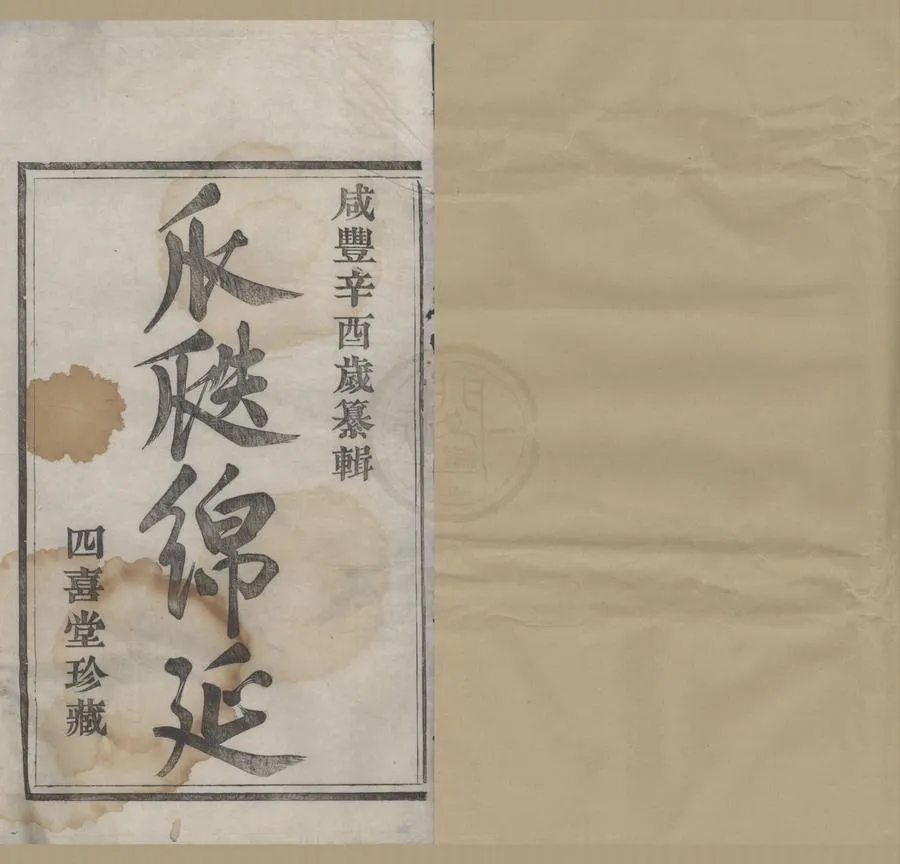 咸豐辛酉歲纂輯
瓜瓞綿延
四喜堂珍藏